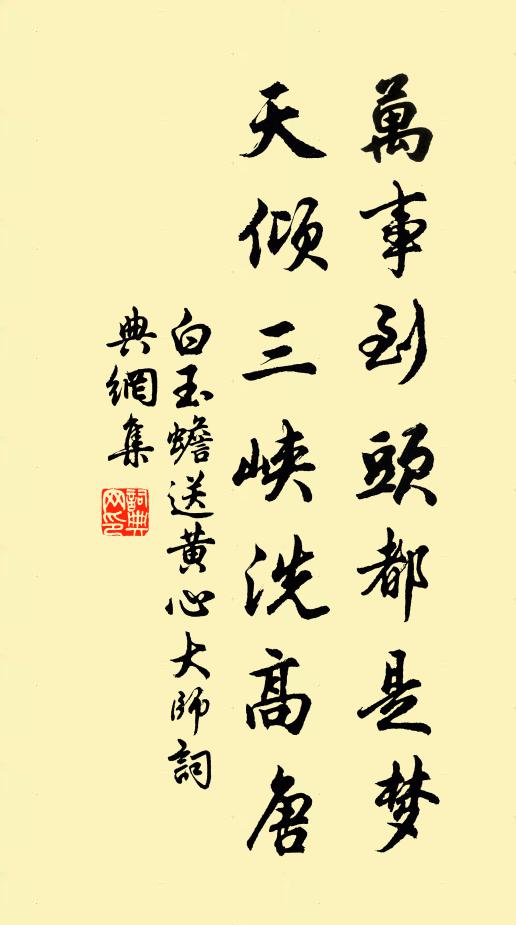 萬事到頭都是梦
天倾三峡洗高唐
白玉蟾送黄心大師詞
典網集
詞典网印